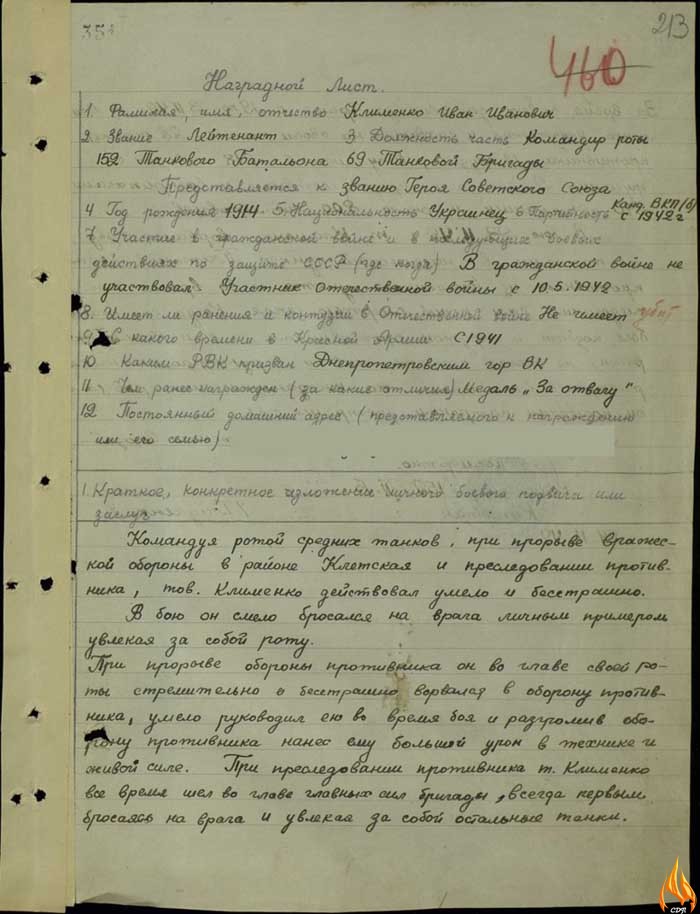 351
213
460
Наградной Лист.
1. Фамилия, имя, отчество Клименко Иван Иванович
2. Звание Лейтенант 3 Должность часть Командир роты
152 Танкового Батальона 69 Танковой Бригады
Представляется к званию Героя Советского Союза
4 Год рождения 1914 5. Национальность Украинец 6 Партийность Канд. ВКП(б)
с 1942 г
7 Участие в гражданской войне и в последующих боевых
действиях по защите СССР (где когда) В гражданской войне не
участвовал. Участник отечественной войны с 10.5.1942
8. Имеет ли ранения и контузии в Отечественной войне Не имеет убит
9 С какого времени в Красной Армии С 1941
10 Каким РВК призван Днепропетровским гор ВК
11 Чем ранее награжден (за какие отличия) Медаль „За отвагу"
12 Постоянный домашний адрес (представляемого к награждению
или его семьи)
1. Краткое, конкретное изложение личного боевого подвига или
заслуг
Командуя ротой средних танков, при прорыве вражес-
кой обороны в районе Клетская и преследовании против-
ника, тов. Клименко действовал умело и бесстрашно.
В бою он смело бросался на врага личным примером
увлекая за собой роту.
При прорыве обороны противника он во главе своей ро-
ты стремительно и бесстрашно ворвался в оборону против-
ника, умело руководил ею во время боя и разгромив обо-
рону противника нанес ему большой урон в технике и
живой силе. При преследовании противника т. Клименко
все время шел во главе главных сил бригады, всегда первым
бросаясь на врага и увлекая за собой остальные танки.
CDB